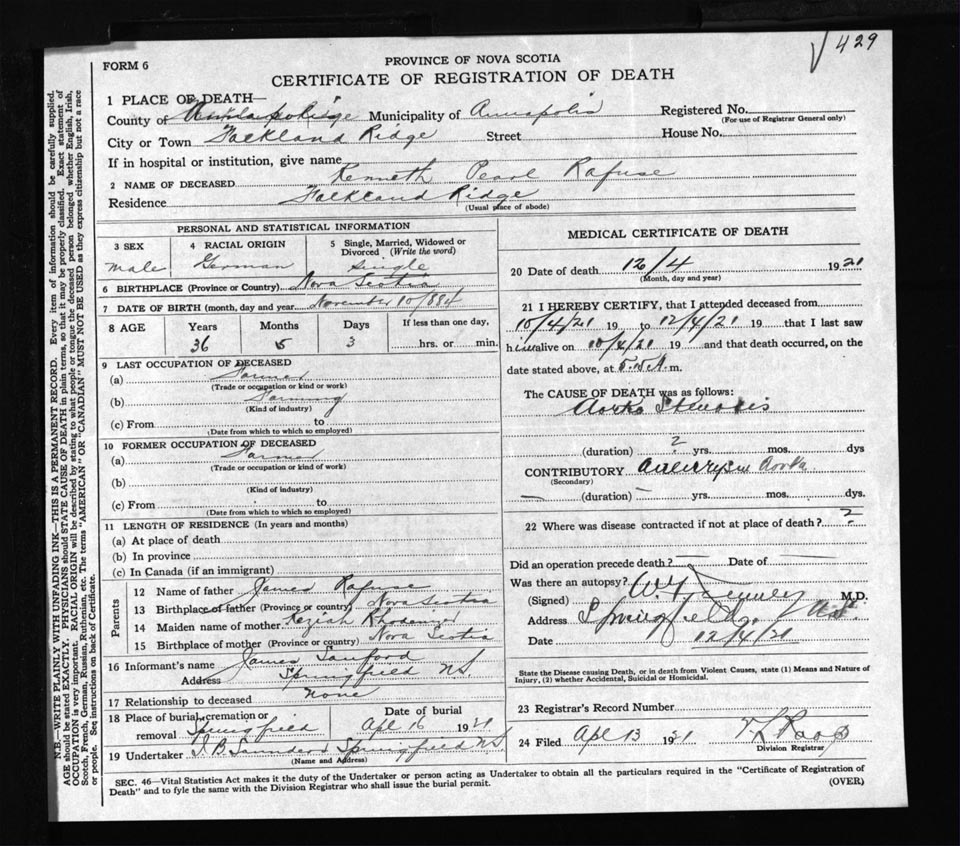 429
PROVINCE OF NOVA SCOTIA
FORM 6
CERTIFICATE OF REGISTRATION OF DEATH
N.B.—WRITE PLAINLY WITH UNFADING INK—THIS IS A PERMANENT RECORD. Every item of information should be carefully supplied.
AGE should be stated EXACTLY. PHYSICIANS should STATE CAUSE OF DEATH in plain terms, so that it may be properly classified. Exact statement of
OCCUPATION is very important. RACIAL ORIGIN will be described by stating to what people or tongue the deceased person belonged whether English, Irish,
Scotch, French, German, Russian, Ruthenian, etc. The terms "AMERICAN" OR "CANADIAN" MUST NOT BE USED as they express citizenship but not a race
or people. See instructions on back of Certificate.
1 PLACE OF DEATH—
County of Municipality of Annapolis Registered No.
(For use of Registrar General only)
City or Town Falkland Ridge Street House No.
If in hospital or institution, give name
2 NAME OF DECEASED Kenneth Pearl Rafuse
Residence Falkland Ridge
(Usual place of abode)
PERSONAL AND STATISTICAL INFORMATION
3 SEX 4 RACIAL ORIGIN 5 Single, Married, Widowed or Divorced (Write the word)
male German single
6 BIRTHPLACE (Province or Country) Nova Scotia
7 DATE OF BIRTH (month, day and year November 10/884
8 AGE Years Months Days If less than one day,
36 5 3 hrs. or min.
9 LAST OCCUPATION OF DECEASED
(a) Farmer
(Trade or occupation or kind or work)
(b) Farming
(Kind of industry)
(c) From to
(Date from which to which so employed)
10 FORMER OCCUPATION OF DECEASED
(a) Farmer
(Trade or occupation or kind of work)
(b)
(Kind of industry)
(c) From to
(Date from which to which so employed)
11 LENGTH OF RESIDENCE (In years and months)
(a) At place of death
(b) In province
(c) In Canada (if an immigrant)
Parents
12 Name of father James Rafuse
13 Birthplace of father (Province or country) Nova Scotia
14 Maiden name of mother Keziah Rhodenizer
15 Birthplace of mother (Province or country) Nova Scotia
16 Informant's name James Sanford
Address Springfield N.S.
17 Relationship to deceased None
18 Place of burial, cremation or Date of burial
removal Springfield Apl 16 1921
19 Undertaker Springfield NS
(Name and Address)
MEDICAL CERTIFICATE OF DEATH
20 Date of death 12/4 1921
(Month, day and year)
21 I HEREBY CERTIFY, that I attended deceased from
10/4/21 19 to 12/4/21 19 that I last saw
him alive on 10/4/21 19 and that death occurred, on the
date stated above, at m.
The CAUSE OF DEATH was as follows:
Aorta Stenosis
(duration) ? yrs. mos. days
CONTRIBUTORY Aneurysm Aorta
(Secondary)
(duration) yrs. mos. dys.
22 Where was disease contracted if not at place of death? ?
Did an operation precede death? Date of
Was there an autopsy?
(Signed) M.D.
Address Springfield
Date 12/4/21
State the Disease causing Death, or in death from Violent Causes, state (1) Means and Nature of
Injury, (2) whether Accidental, Suicidal or Homicidal.
23 Registrar's Record Number
24 Filed Apl 13 1921
Division Registrar
SEC. 46—Vital Statistics Act makes it the duty of the Undertaker or person acting as Undertaker to obtain all the particulars required in the "Certificate of Registration of
Death" and to fyle the same with the Division Registrar who shall issue the burial permit. (OVER)